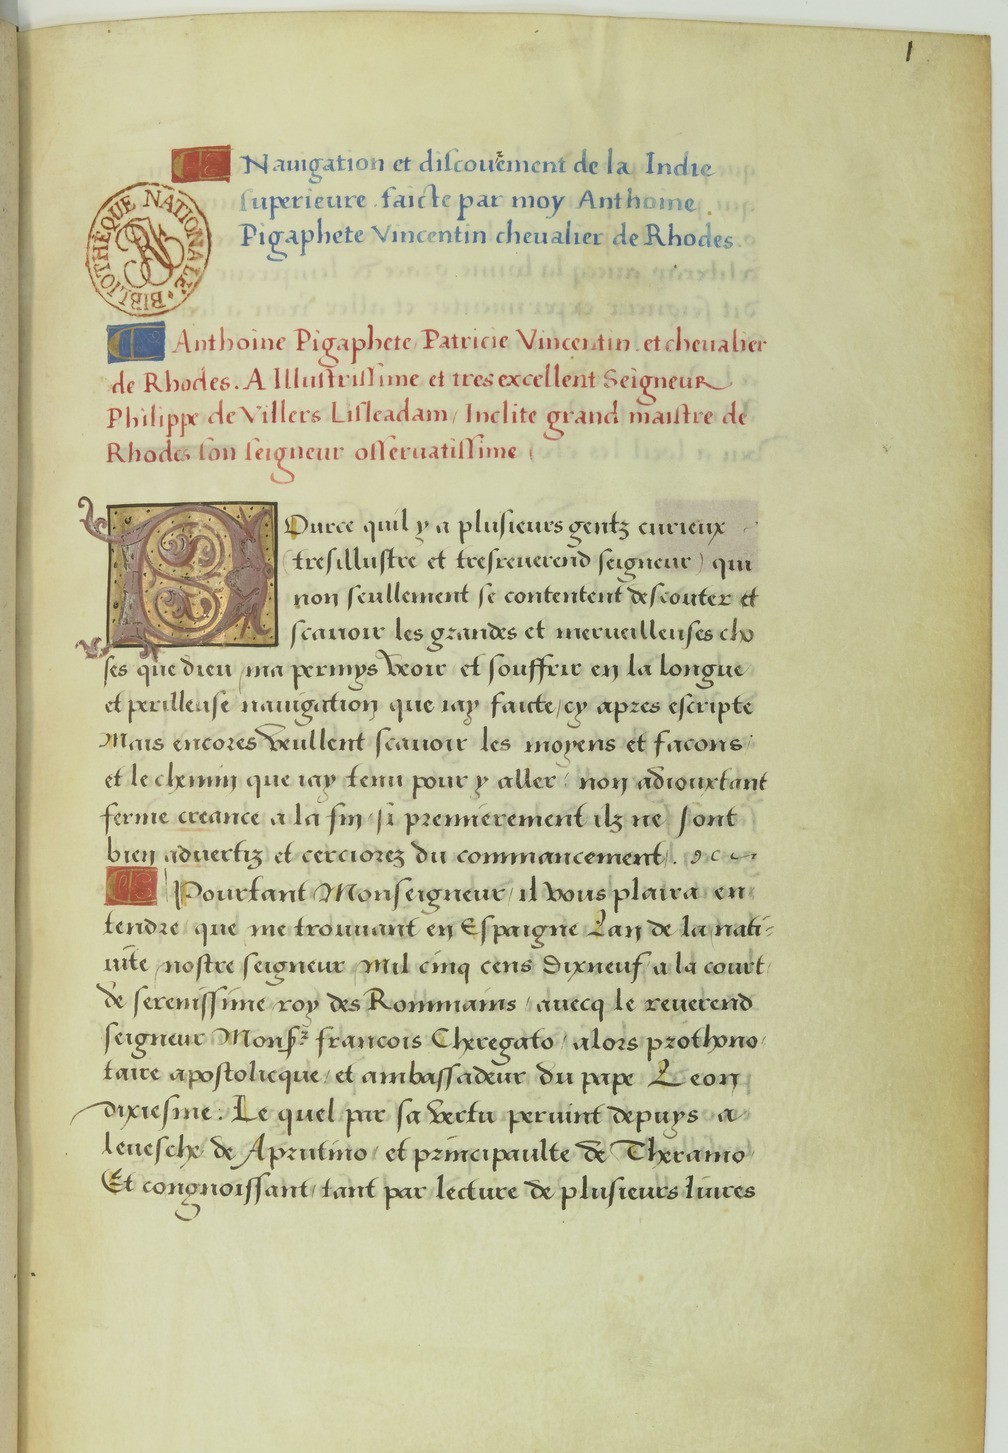 1
Nauigation et discouurement de la Indie
superieure faicte par moy Anthoine
Pigaphete Vincentin cheualier de Rhodes.
BIBLIOTHÈQUE NATIONALE
Anthoine Pigaphete Patricie Vincentin et cheualier
de Rhodes. A Illustrissime et tresexcellent Seigneur
Philippe de Villers Lisleadam / Inclite grand maistre de
Rhodes son seigneur osseruatissime
POurce quil y a plusieurs gentz curieux
(tresillustre et tresreuerend seigneur) qui
non seullement se contentent descouter et
scauoir les grandes et merueilleuses cho
ses que dieu ma permys veoir et souffrir en la longue
et perilleuse nauigation que iay faicte / cy apres escripte
Mais encores veullent scauoir les moyens et facons
et le chemin que iay tenu pour y aller / non adiouxtant
ferme creance a la fin / si premierement ilz ne sont
bien aduertiz et cerciorez du commancement.
Pourtant Monseigneur / il vous plaira en
tendre que me trouuant en Espaigne Lan de la nati-
uite nostre seigneur Mil cinq cens Dixneuf / a la court
de serenissime roy des Rommains / auecq le reuerend
seigneur Monsr francois Cheregato / alors prothono
taire apostolicque / et ambassadeur du pape Leon
dixiesme. Le quel par sa vertu peruint depuys a
leuesche de Aprutino / et principaulte de Theramo
Et congnoissant / tant par lecture de plusieurs liures